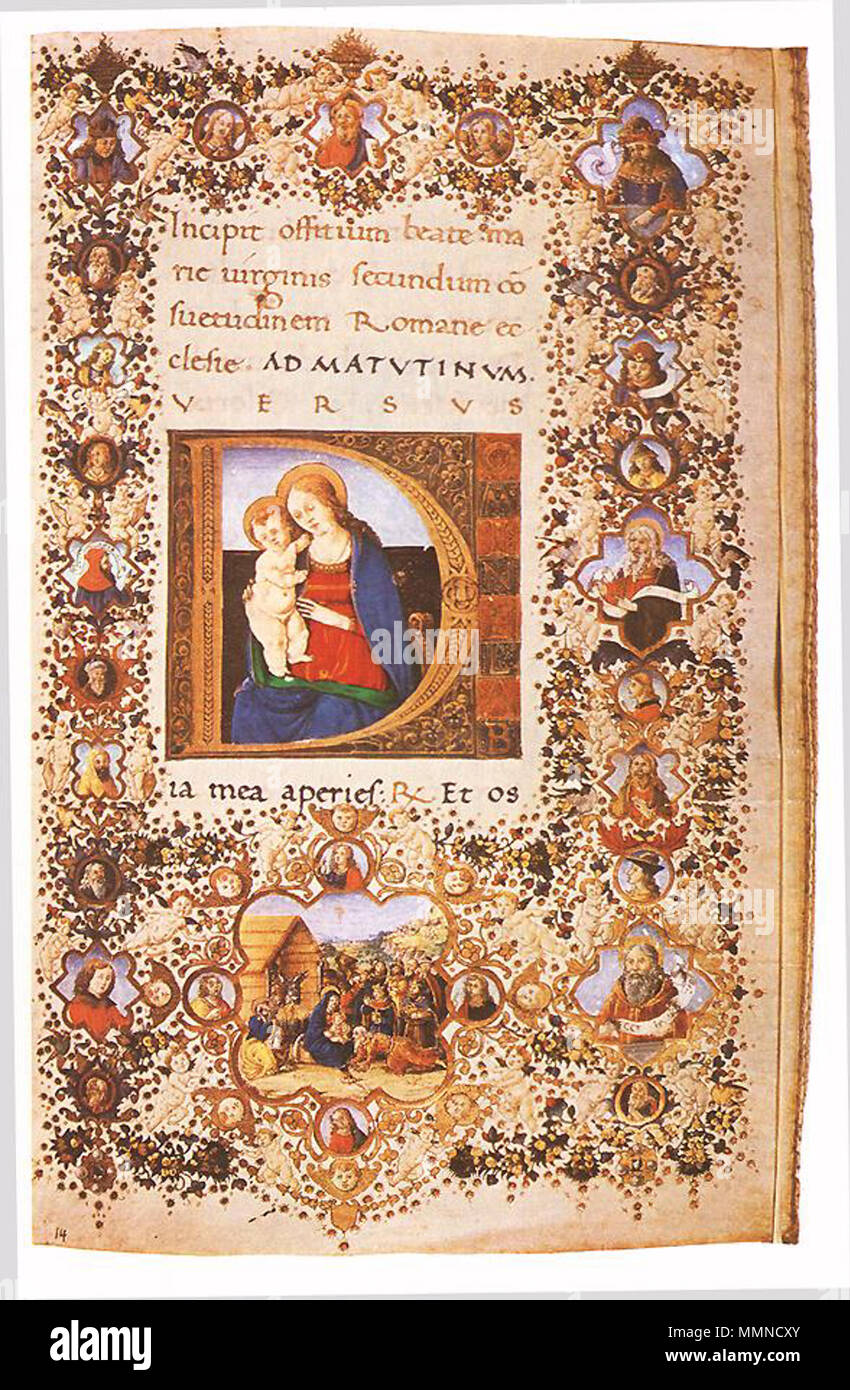 Incipit offitium beate ma
rie uirginis secundum cō
suetudinem Romane ec
clesie. AD MATVTINVM.
VERSVS
D
ia mea aperies: R Et os
14
alamy
Image ID: MMNCXY
www.alamy.com